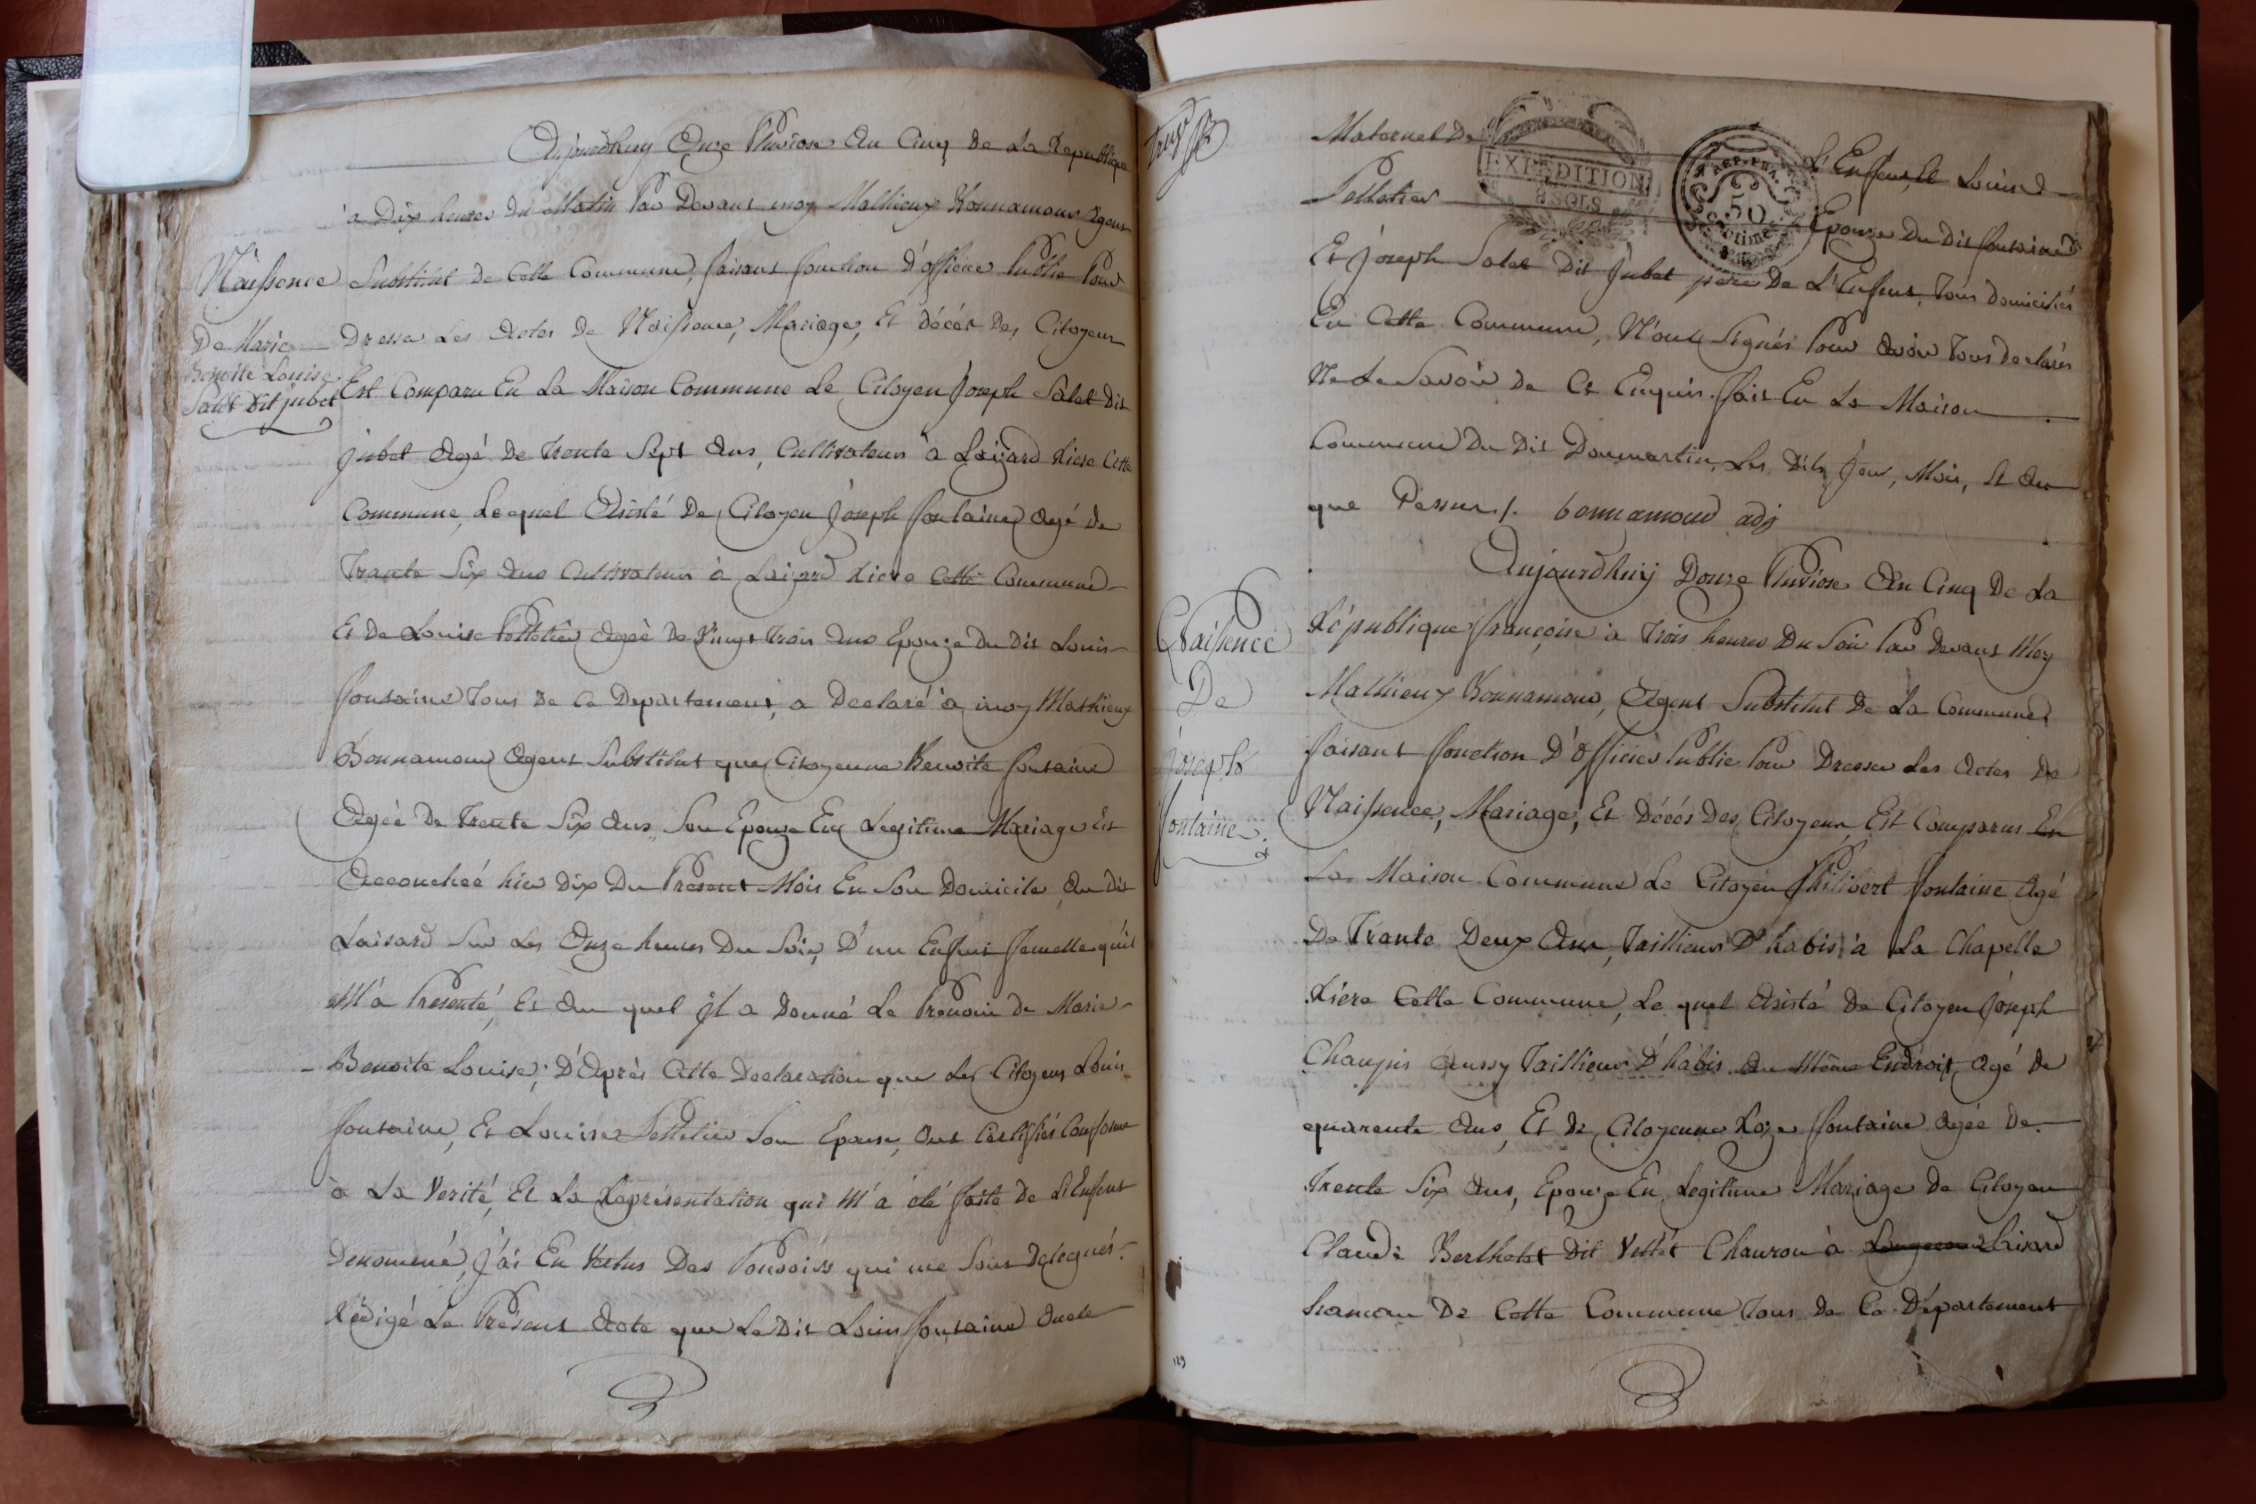 Aujourdhuy Onze Pluviose An Cinq de La Republique
à Dix heures du Matin Par Devant moy Mathieux Bonnamour Agent
Naissence
De Marie
Benoite Louise
Salet dit jubet
Substitut de Cette Commune, faisant fonction d'officier Public Pour
Dresser Les Actes de Naissence, Mariage, Et décés Des Citoyens
Est Comparu En La Maison Commune Le Citoyen Joseph Salet Dit
jubet Agé De Trente Sept Ans, Cultivateur à Laizard Riere Cette
Commune, Lequel Asisté De Citoyen Joseph fontaine Agé de
Trante Six Ans Cultivateur à Laizard Riere Cette Commune
Et De Louise Pelletier Ageé De Vingt Trois Ans Epouze Du Dit Louis
fontaine Tous De Ce Departement, a Declaré à moy Mathieux
Bonnamour Agent Substitut que Citoyenne Benoite fontaine
Ageé De Trente Six Ans Son Epouze En Legitime Mariage Est
Accoucheé hier Dix Du Present Mois En Son Domicile Au Dit
Laisard Sur Les Onze heures Du Soir, D'un Enfant femelle qu'il
M'a Presenté, Et Au quel jl a Donné Le Prenom De Marie
Benoite Louise; D'Après Cette Declaration que Les Citoyens Louis
fontaine, Et Louise Pelletier Son Epouse, Ont Certifiés Conforme
à La Verité, Et La Représentation qui M'a eté faite De L'Enfant
Denomené, J'ai En Vertus Des Pouvoirs qui me Sont Delegués
Rédigé Le Present Acte que Le Dit Louis fontaine Oncle
Maternel De L'Enfant, Et Louise
EXPEDITION
8 SOLS
50
Pelletier Epouze Du Dit fontaine
Et Joseph Salet Dit Jubet pere De L'Enfant Tous Domiciliés
En Cette Commune, N'ont Signés Pour Avoir Tous Declarés
Ne Le Savoir De Ce Enquis. fait En La Maison
Commune Du Dit Dommartin, Les Dits Jour, Mois, Et An
que Dessus /. bonnamour adj
Naissence
De
joseph
fontaine
Aujourdhuij Douze Pluviose An Cinq De La
République françoise à Trois heures Du Soir Par Devant Moy
Mathieux Bonnamour, Agent Substitut De La Commune
faisant fonction D'Officier Public Pour Dresser Les Actes De
Naissence, Mariage, Et Décés Des Citoyens Est Comparus En
La Maison Commune Le Citoyen Philibert fontaine Agé
De Trante Deux Ans, Taillieur D'habis à La Chapelle
Riere Cette Commune, Le quel Asisté De Citoyen Joseph
Chaupis Aussy Taillieur D'habis Au Même Endroit, Agé De
quarente Ans, Et De Citoyenne Roze fontaine Ageé De
Trente Six Ans, Epouze En Legitime Mariage De Citoyen
Claude Berthelet Dit Vettet Chauron à Laisard
hamau De Cette Commune Tous De Ce Département
129